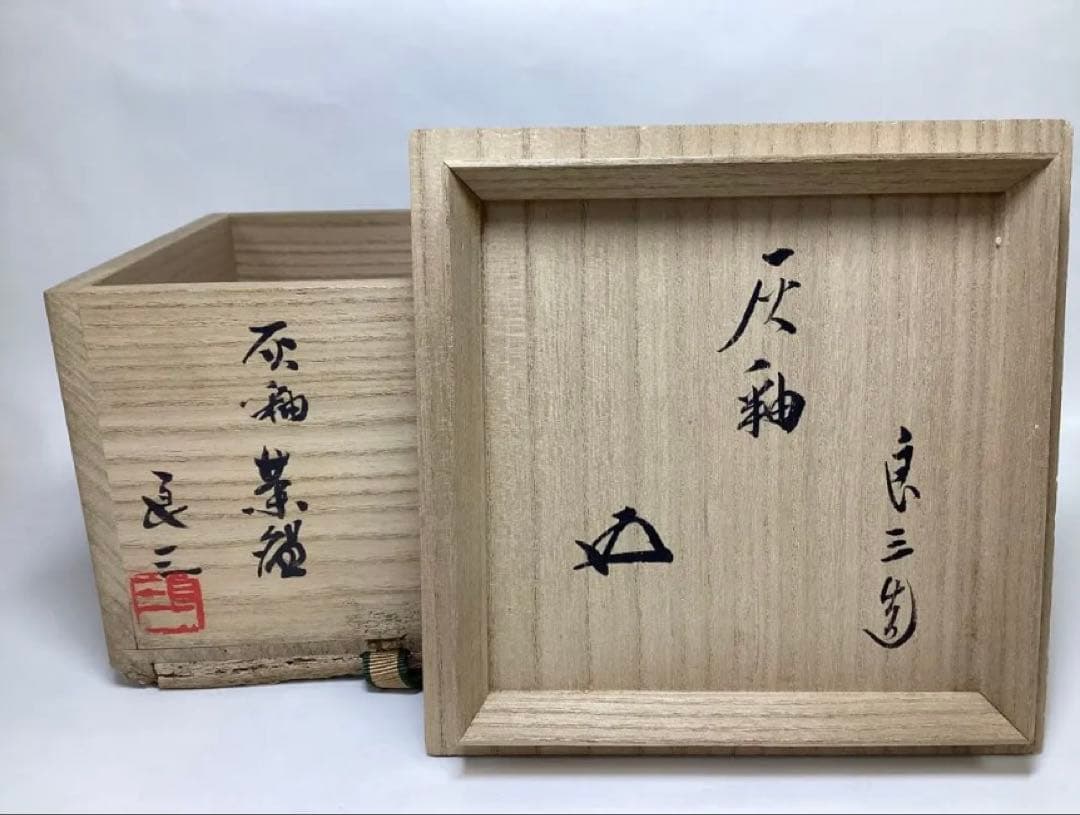 良三造
灰釉
灰釉 茶
良三